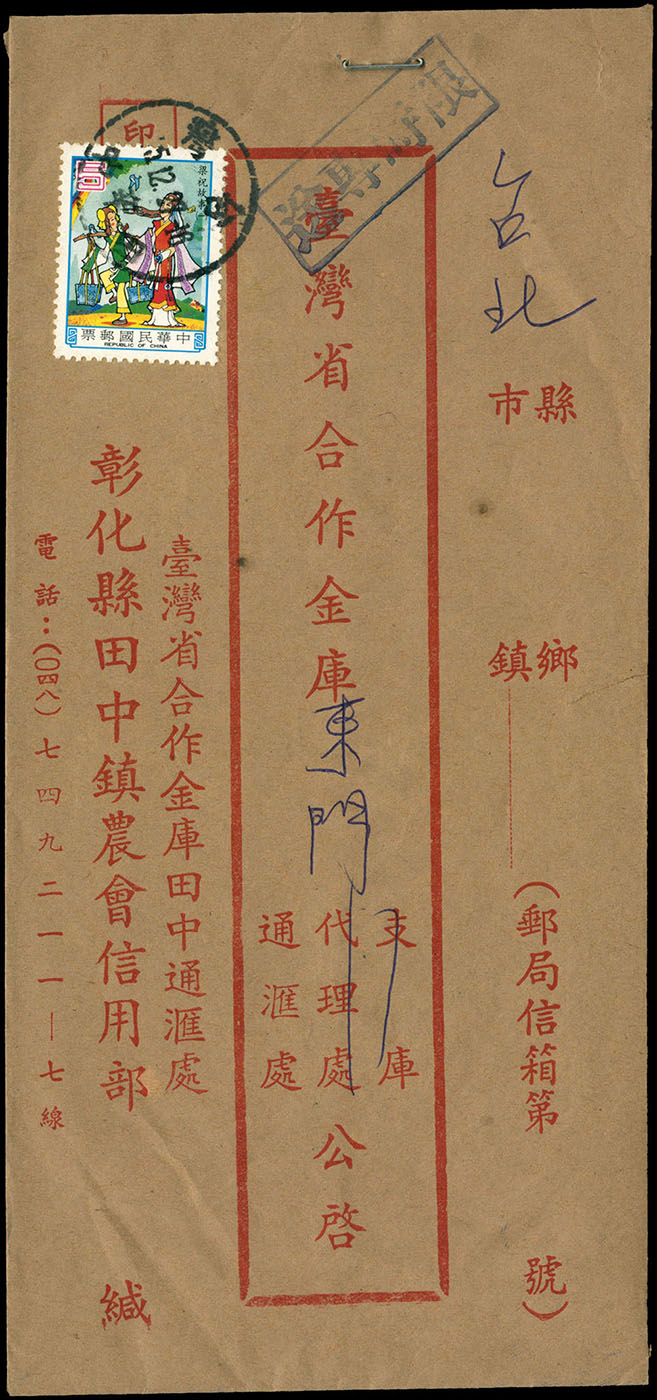 台北
縣市
鄉鎮
（郵局信箱第　號）
限時專送
臺灣省合作金庫東門
支庫
代理處
通匯處
公啓
臺灣省合作金庫田中通匯處
彰化縣田中鎮農會信用部
緘
電話：（〇四八）七四九二一一｜七線
印
梁祝故事
中華民國郵票
REPUBLIC OF CHINA